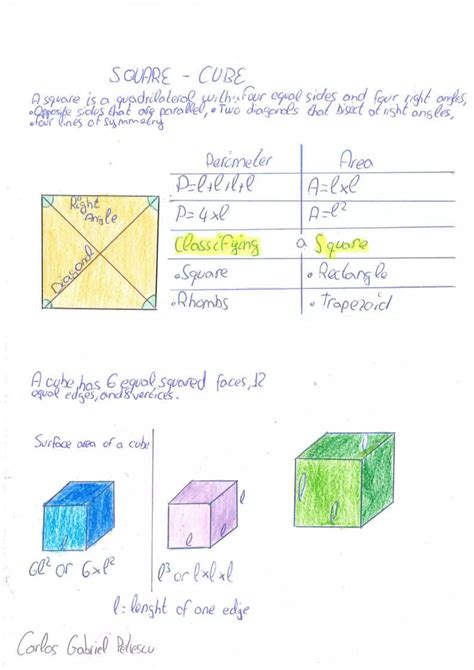 SQUARE - CUBE
A square is a quadrilateral with: four equal sides and four right angles,
• Opposite sides that are parallel, • Two diagonals that bisect at right angles,
• four lines of symmetry
Perimeter Area
P=l+l+l+l A=lxl
P=4xl A=l²
Classifying a Square
• Square • Rectangle
• Rhombs • Trapezoid
Right
Angle
Diagonal
A cube has 6 equal, squared faces, 12
equal edges, and 8 vertices.
Surface area of a cube
l
l
l
l
l
l
6l² or 6xl² l³ or lxlxl
l = lenght of one edge
Carlos Gabriel